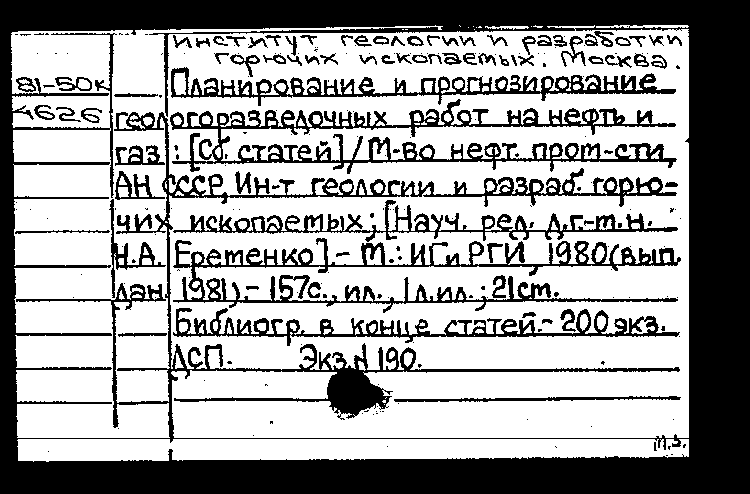 институт геологии и разработки
горючих ископаемых. Москва.
81-50к Планирование и прогнозирование
4626 геологоразведочных работ на нефть и
газ: [Сб. статей]/М-во нефт. пром-сти,
АН СССР, Ин-т геологии и разраб. горю-
чих ископаемых; [Науч. ред. д.г.-м.н.
Н.А. Еременко].- М.: ИГиРГИ, 1980(вып.
дан. 1981).- 157с., ил., 1л.ил.; 21см.
Библиогр. в конце статей.- 200 экз.
ДСП. Экз.N 190.
М.З.